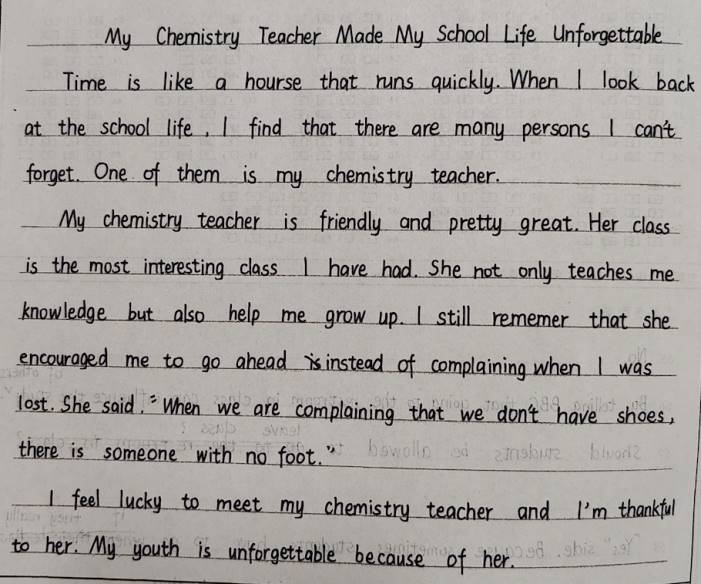 My Chemistry Teacher Made My School Life Unforgettable
Time is like a hourse that runs quickly. When I look back
at the school life, I find that there are many persons I can't
forget. One of them is my chemistry teacher.
My chemistry teacher is friendly and pretty great. Her class
is the most interesting class I have had. She not only teaches me
knowledge but also help me grow up. I still rememer that she
encouraged me to go ahead instead of complaining when I was
lost. She said: "When we are complaining that we don't have shoes,
there is someone with no foot."
I feel lucky to meet my chemistry teacher and I'm thankful
to her. My youth is unforgettable because of her.